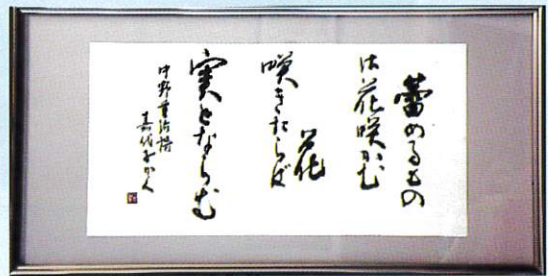 蕾めるもの
は花咲かむ
花
咲きたらば
実とならむ
中野重治詩
嘉代子かく